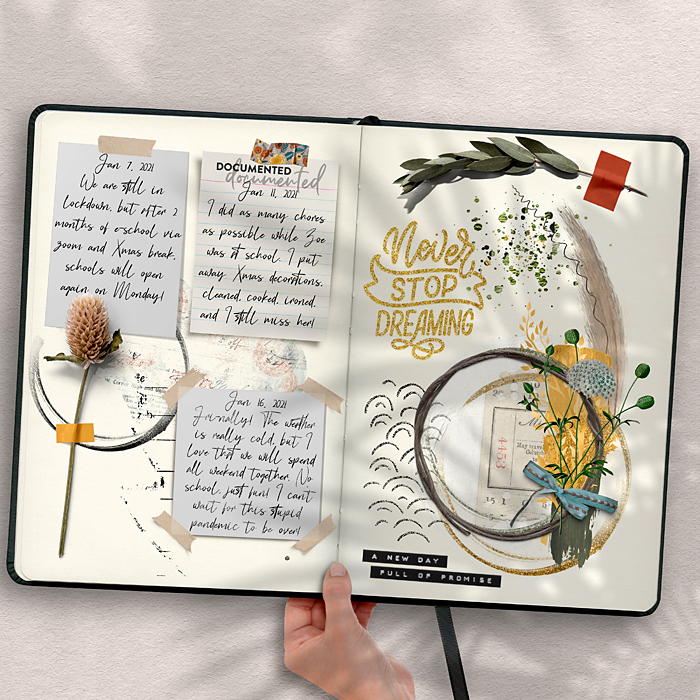 Jan 7, 2021
We are still in
Lockdown, but after 2
months of e-school via
zoom and Xmas break,
schools will open
again on Monday!
DOCUMENTED
documented
Jan 11, 2021
I did as many chores
as possible while Zoe
was at school. I put
away Xmas decorations,
cleaned, cooked, ironed,
and I still miss her!
Jan 16, 2021
Fri-nally! The weather
is really cold, but I
love that we will spend
all weekend together. No
school, just fun! I can't
wait for this stupid
pandemic to be over!
Never
STOP
DREAMING
May travel
15 1
A NEW DAY
FULL OF PROMISE